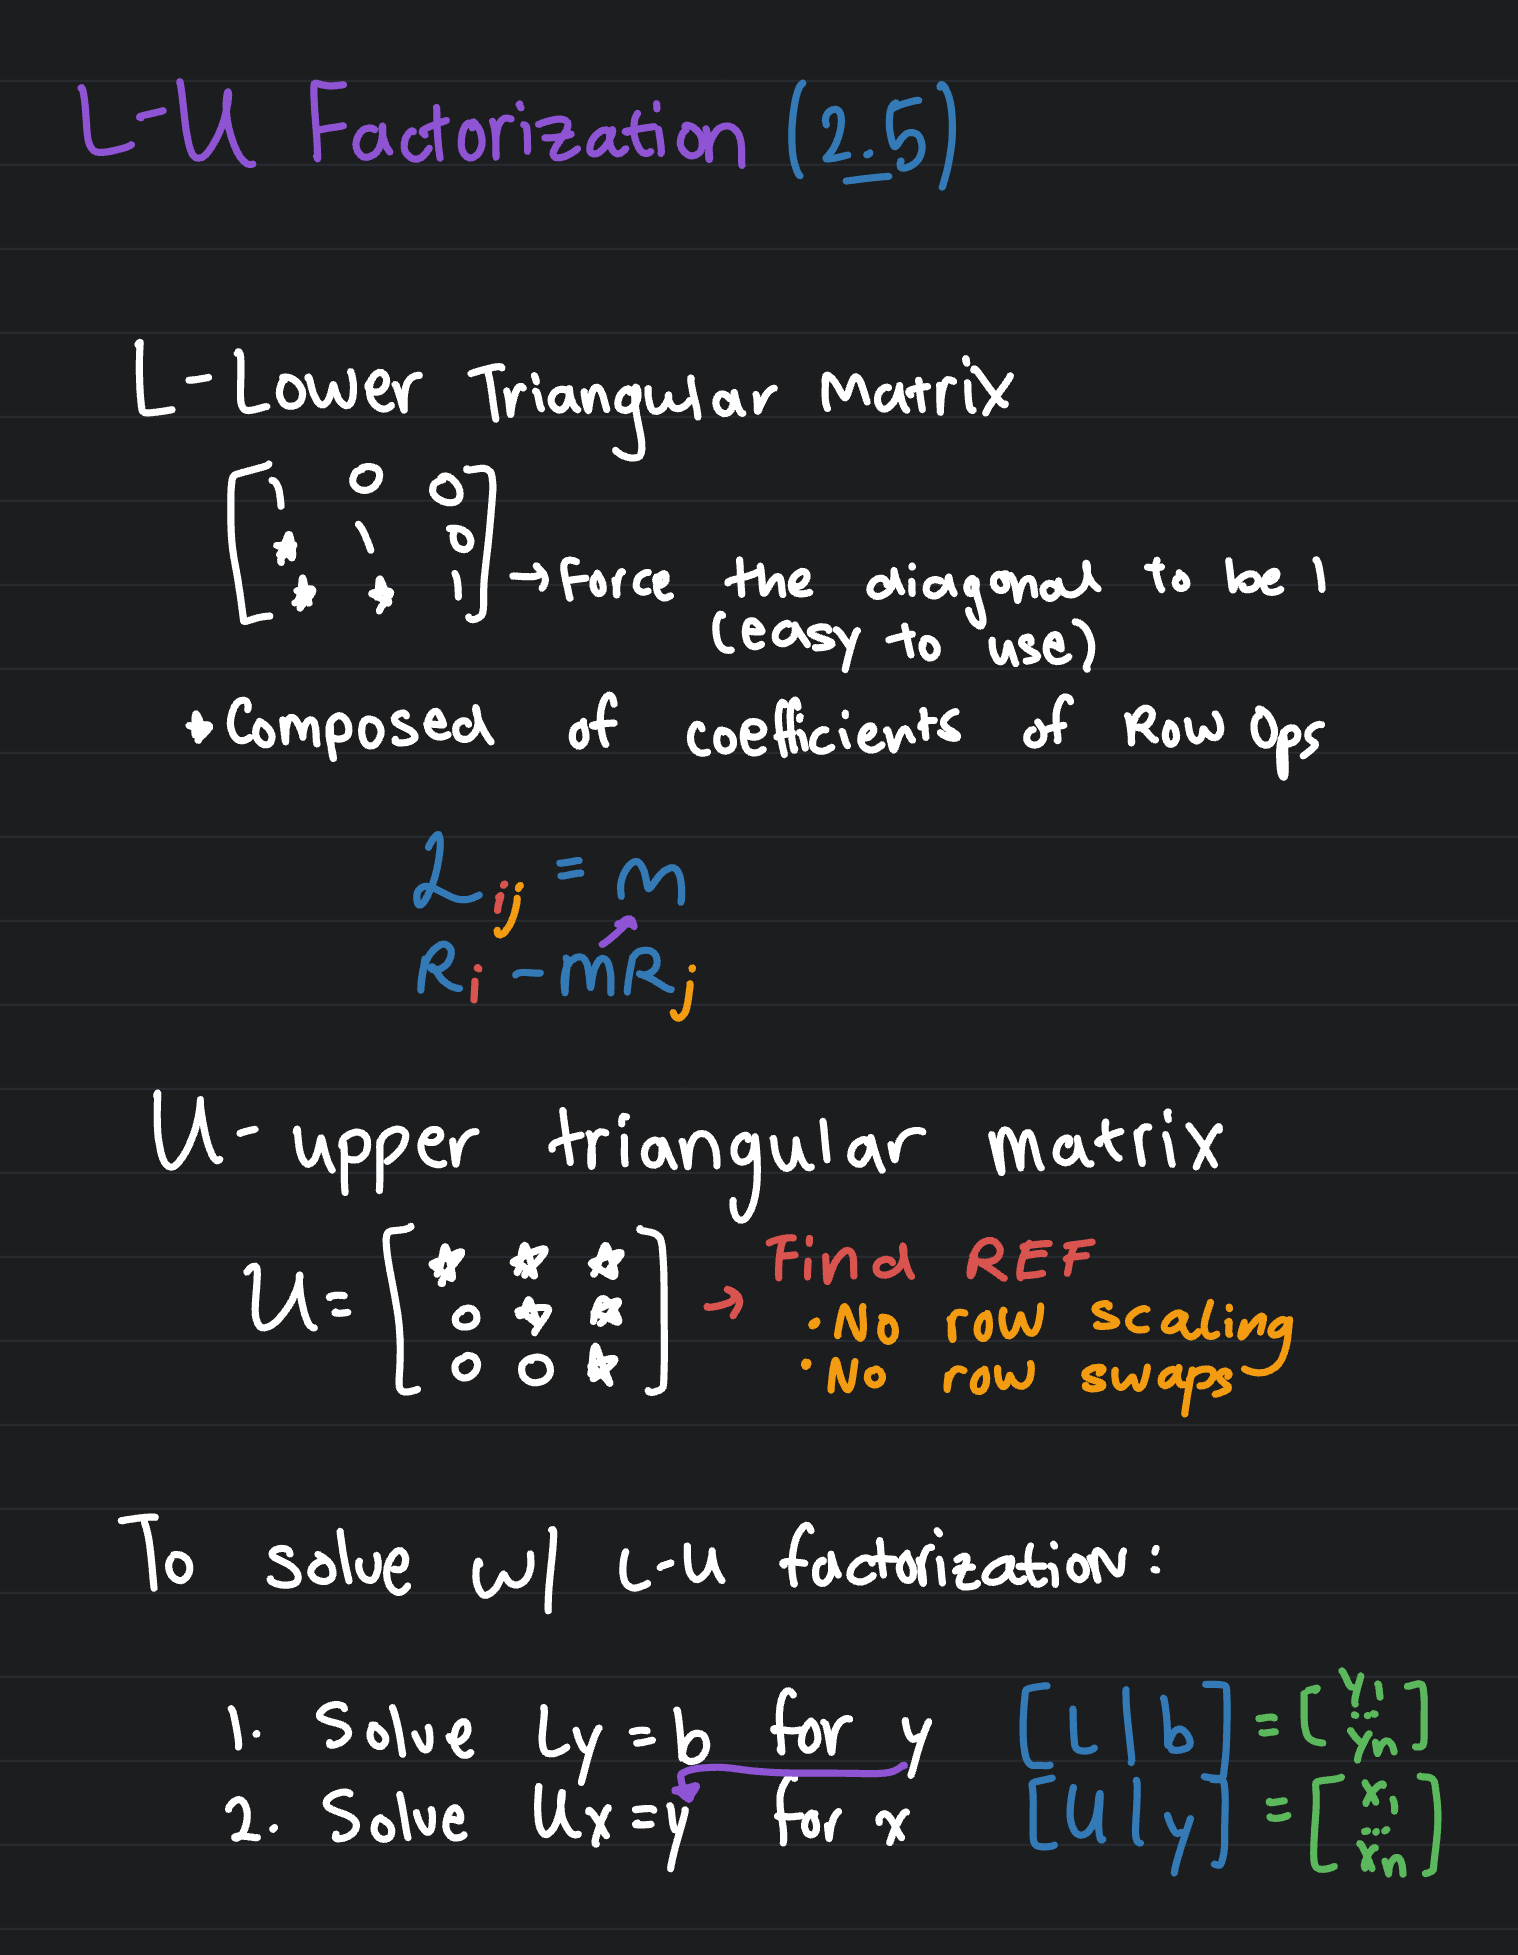 L-U Factorization (2.5)
L - Lower Triangular Matrix
[1 0 0
☆ 1 0
☆ ☆ 1] → Force the diagonal to be 1
(easy to use)
→ Composed of coefficients of Row Ops
L ij = m
Ri - mRj
U - upper triangular matrix
U = [☆ ☆ ☆
0 ☆ ☆
0 0 ☆] → Find REF
• No row scaling
• No row swaps
To solve w/ L-U factorization:
1. Solve Ly = b for y [L | b] = [y1 ... yn]
2. Solve Ux = y for x [U | y] = [x1 ... xn]